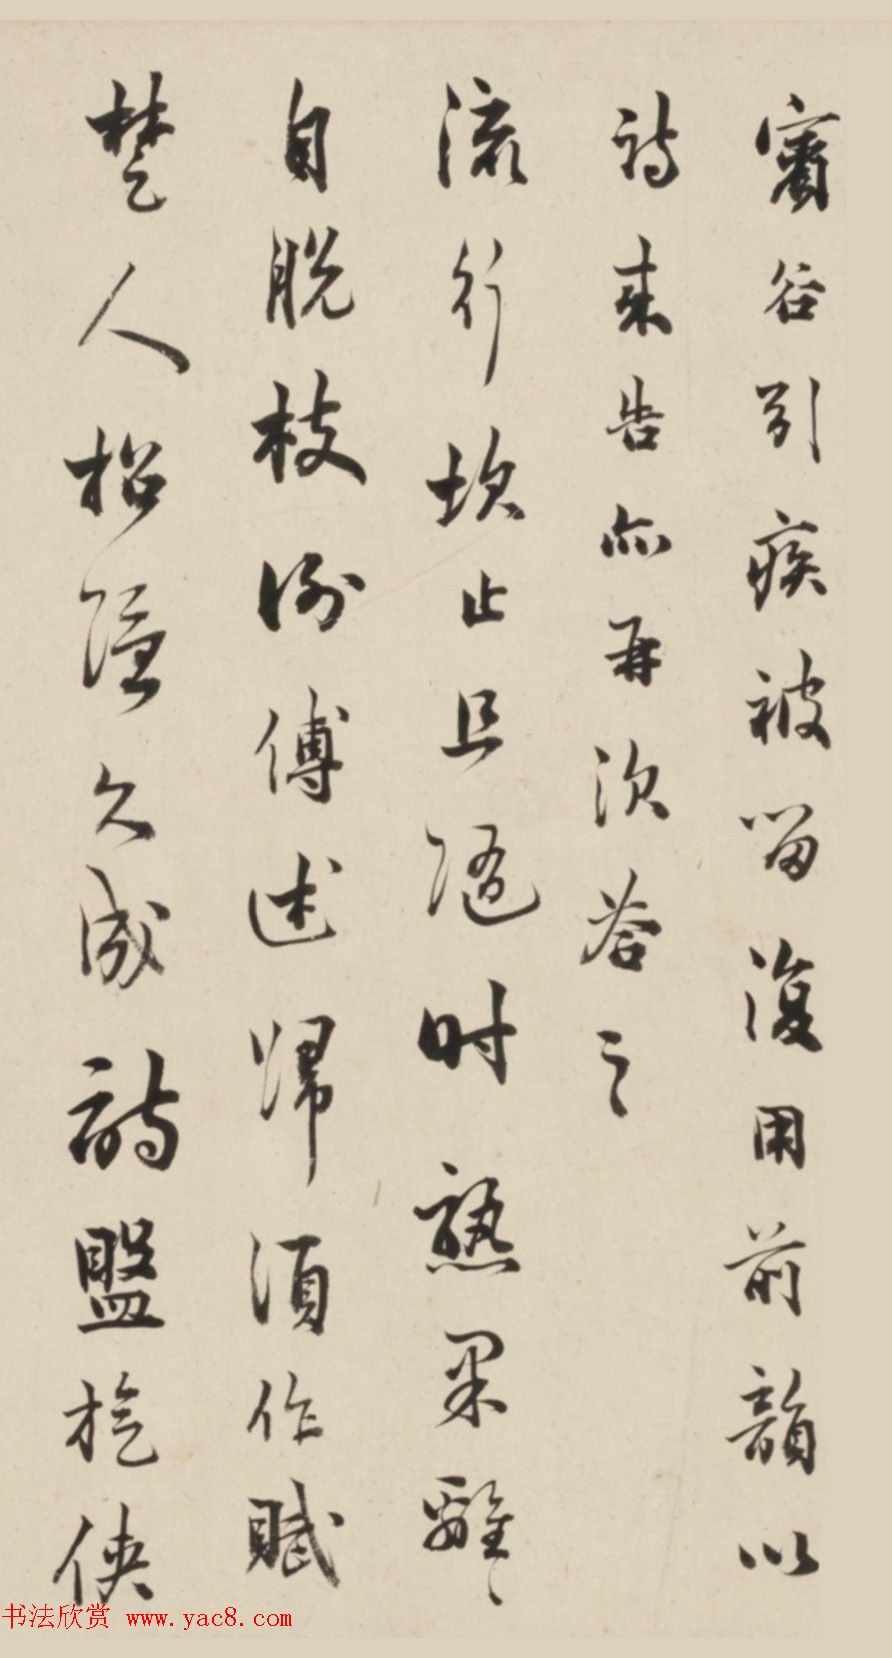 賓谷引疾被留復用前韻以
詩来告亦再次答之
流行坎止且随时熟果離〻
自脱枝例傅述歸須作賦
楚人招隱久成詩盟於侠
书法欣赏 www.yac8.com